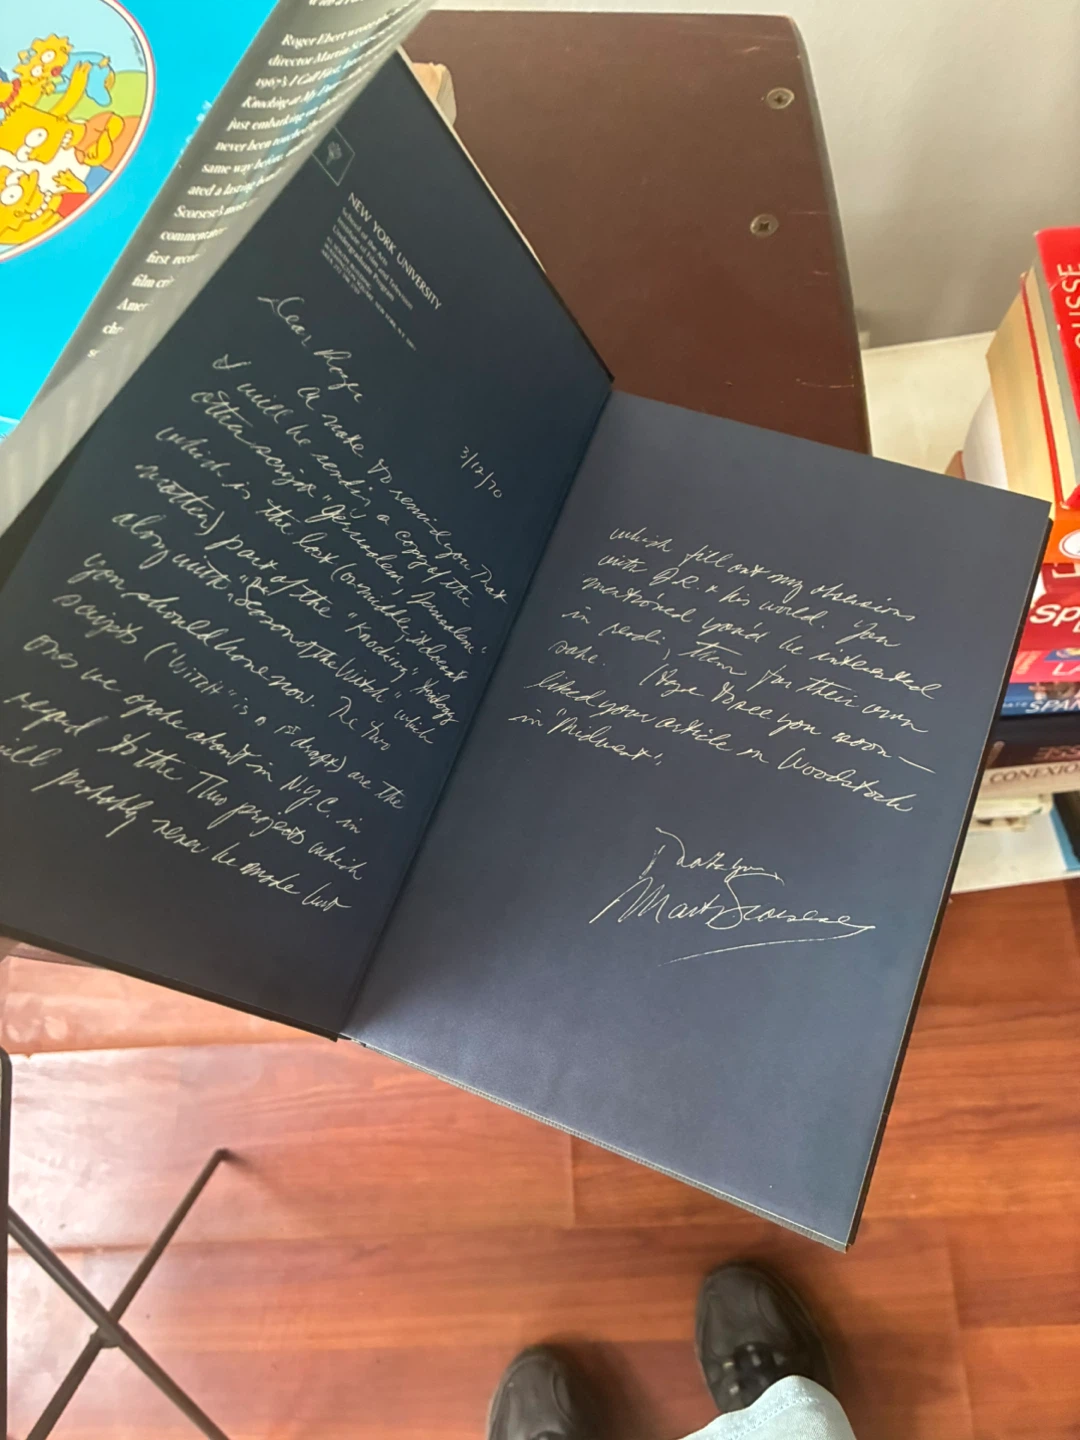 Roger Ebert
director Martin Scorsese
1967's I Call First,
Knocking at My
just embarking on
never been touched
same way before,
ated a lasting
Scorsese's most
commentar
first
film
Amer
NEW YORK UNIVERSITY
School of the Arts
Institute of Film and Television
Undergraduate Program
3/12/70
Dear Roger
A note to remind you that
I will be sending a copy of the
other script "Jerusalem, Jerusalem"
which is the last (or middle, it doesn't
matter) part of the "Knocking" trilogy
along with "Season of the Witch" which
you should have now. The two
scripts ("WITCH" is a 1st draft) are the
ones we spoke about in N.Y.C. in
regard to the two projects which
will probably never be made but
which fill out my obsession
with J.R. & his world. You
mentioned you'd be interested
in reading them for their own
sake. Hope to see you soon —
liked your article on Woodstock
in "Midwest".
Martin Scorsese
SPAN
CONEXIO